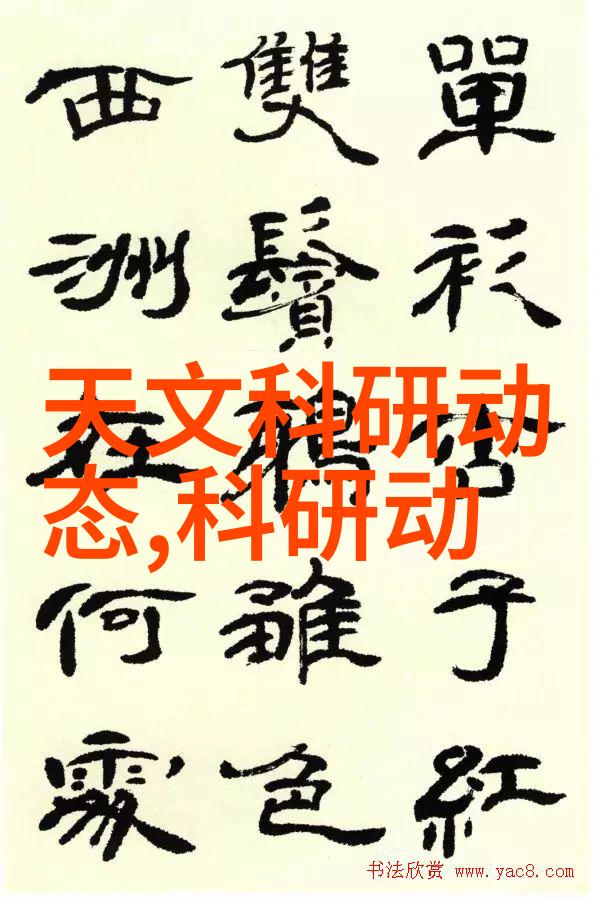 單衫杏子紅
雙鬢鴉雛色
西洲在何處
天文科研动
态,科研动
书法欣赏 www.yac8.com